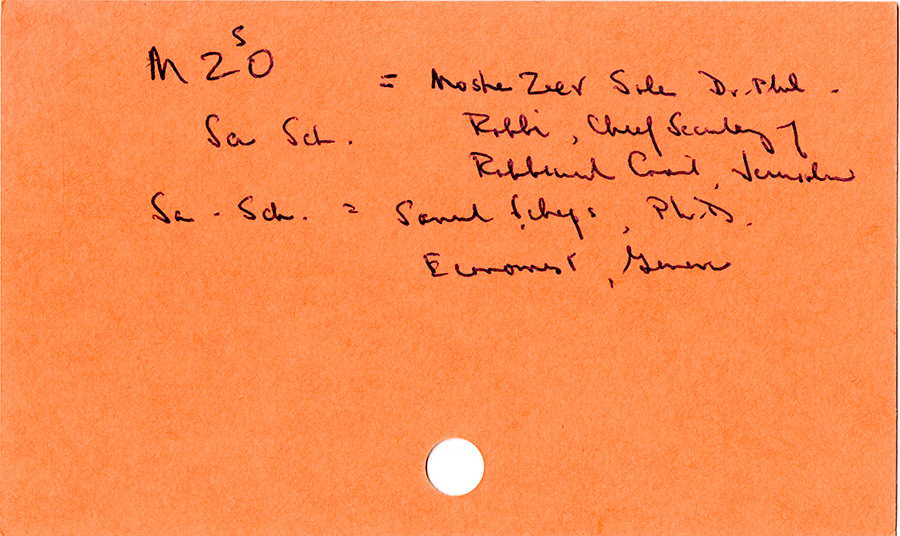 M Z S O
= Moshe Zeev Sole Dr. Phil.
Sa Sch. Rabbi, Chief Secretary of
Rabbinical Council, Jerusalem
Sa. Sch. = Samuel Scheps, Ph.D.
Economist, Geneva